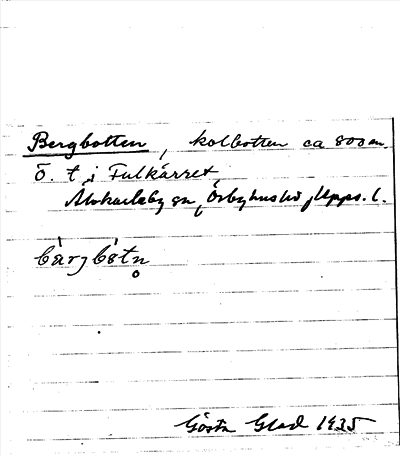 Bergbotten, kolbotten ca 800 m.
Ö. t. i Fulkärret,
Älvkarleby sn, Örbyhus hd, Upps. l.
bàrjbòtn̥
Gösta Glad 1935